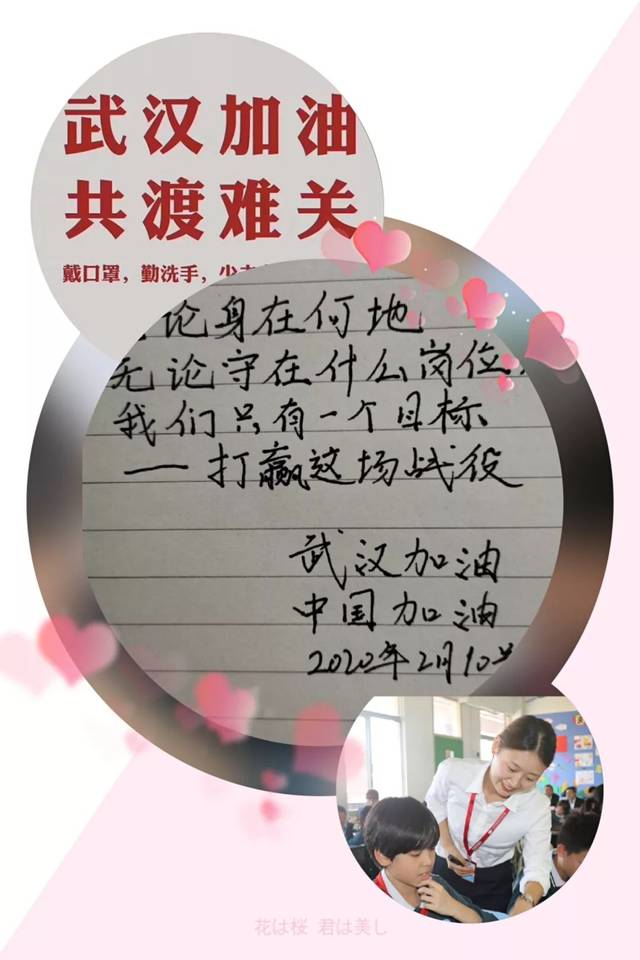 武汉加油
共渡难关
戴口罩，勤洗手，少去
论身在何地
无论守在什么岗位，
我们只有一个目标
——打赢这场战役
武汉加油
中国加油
2020年2月10号
花は桜 君は美し